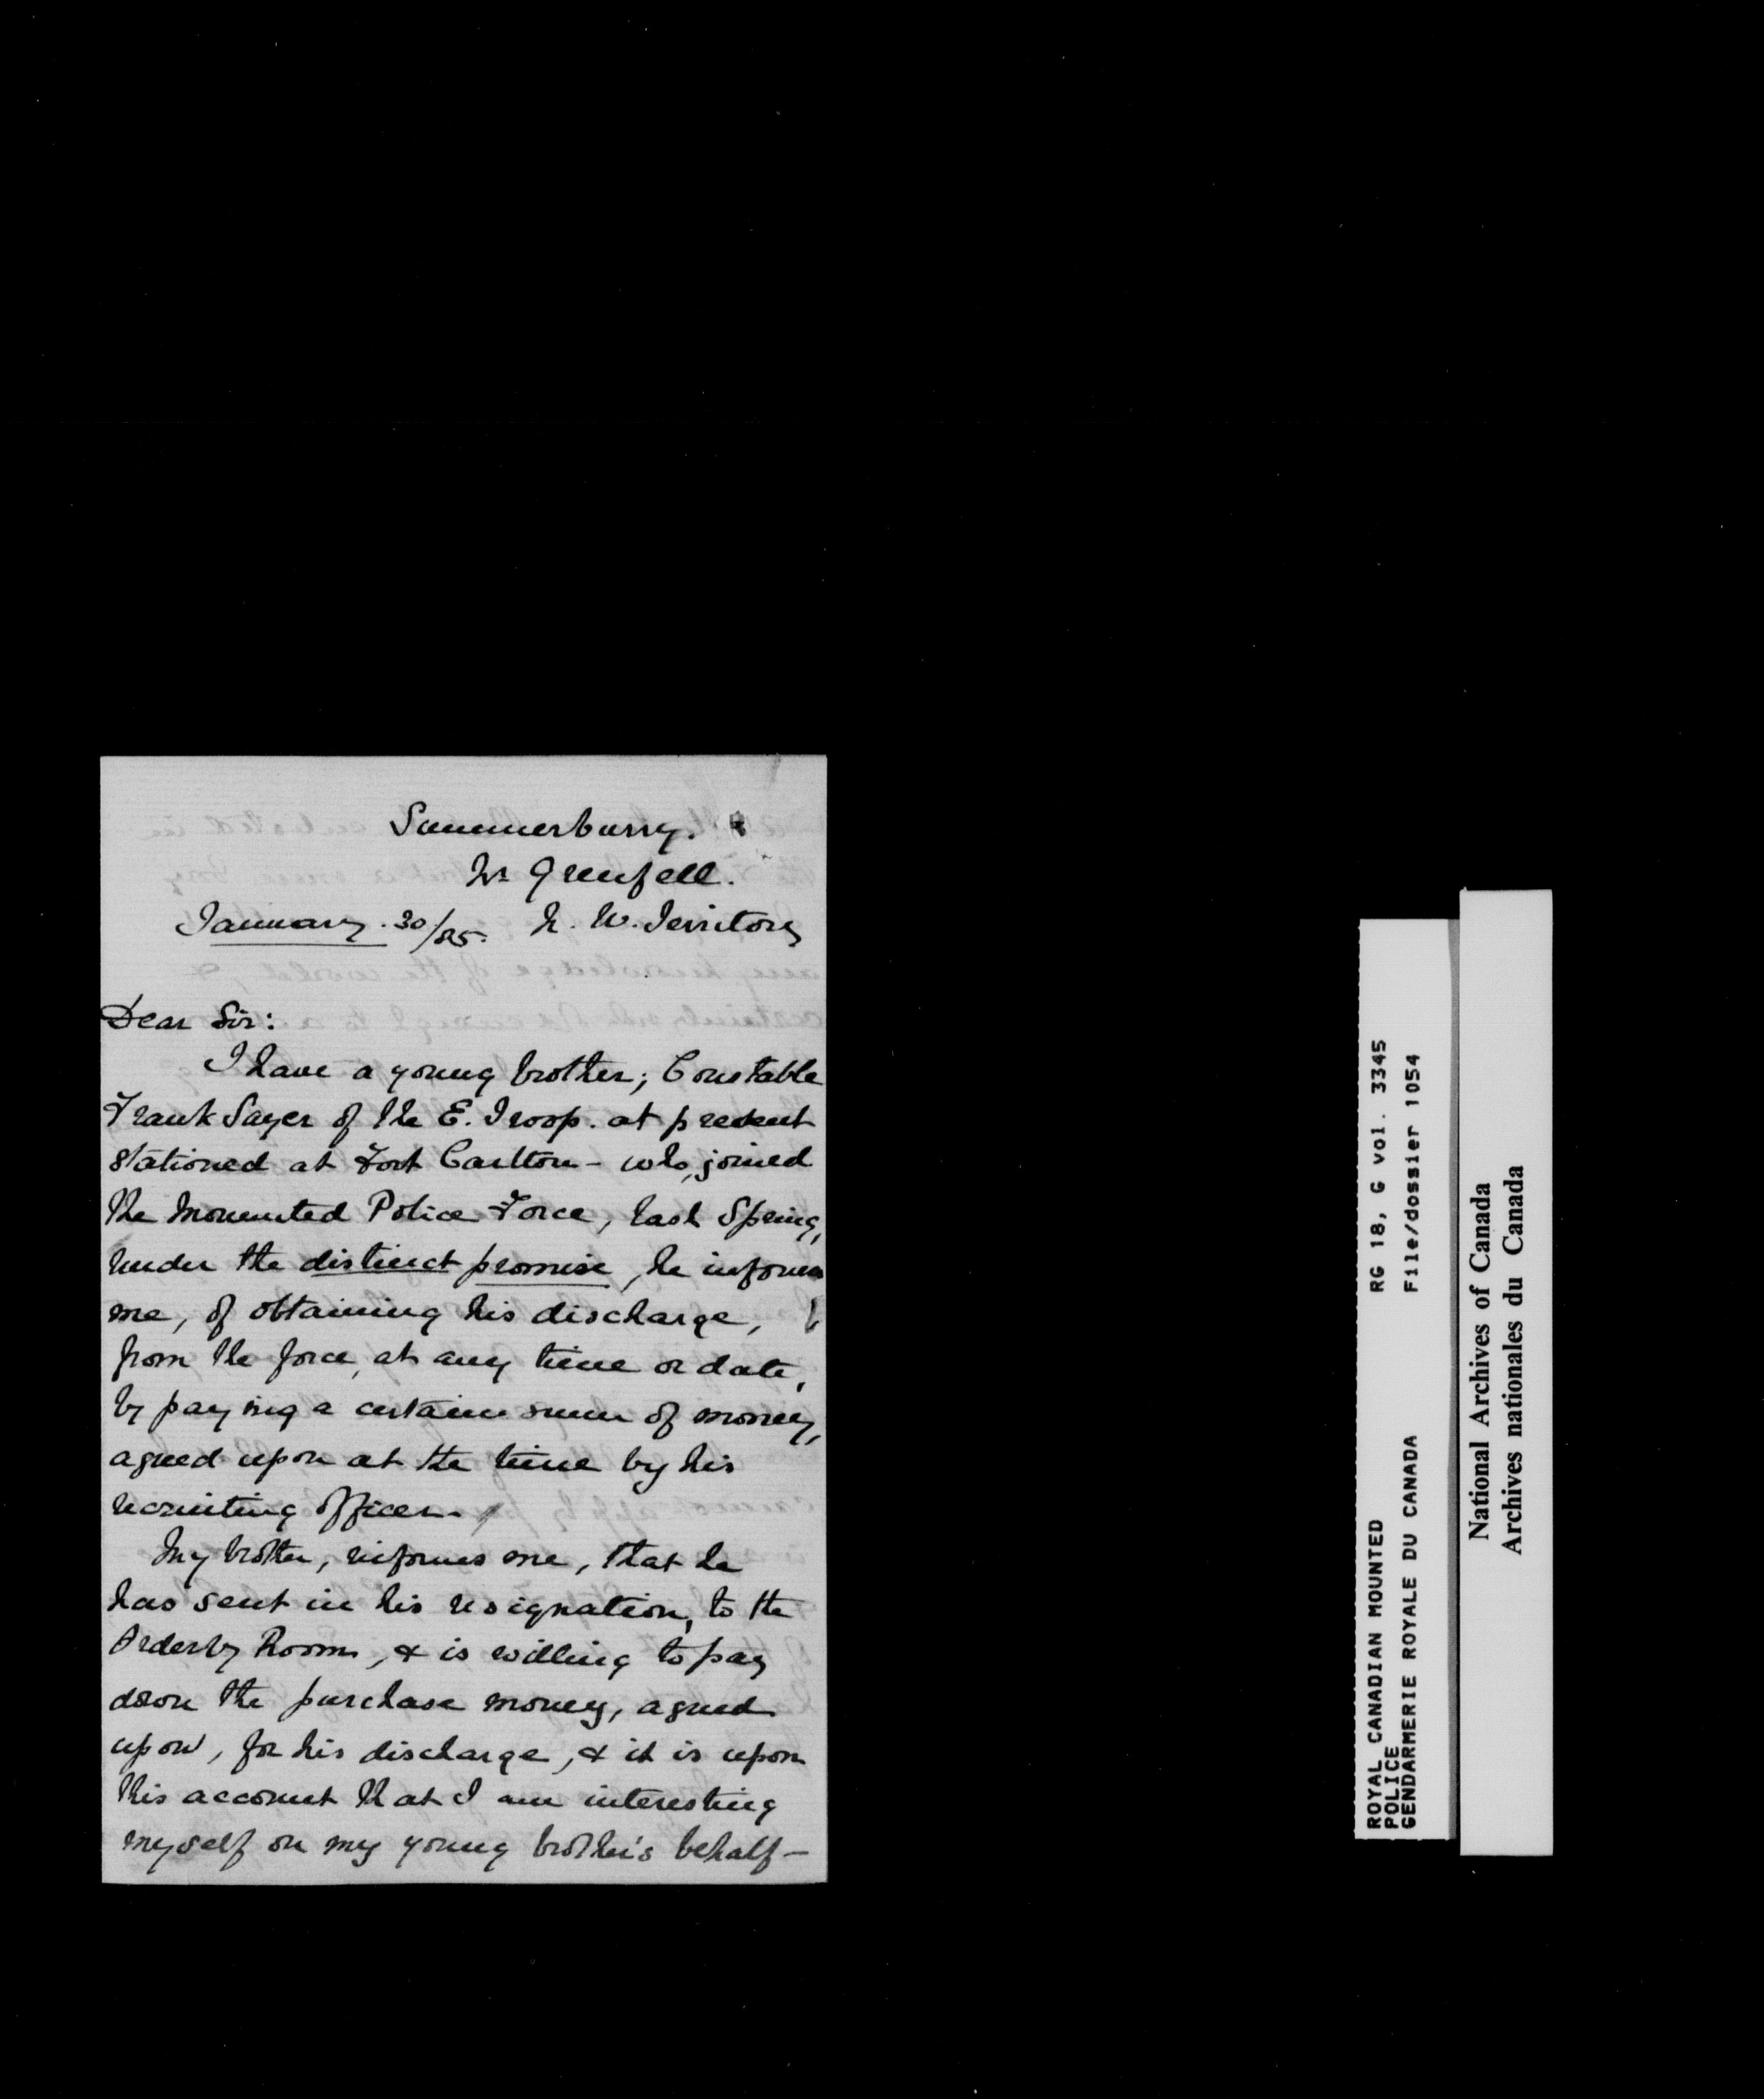 Summerburry.
Nr Grenfell.
January. 30/85. N. W. Territory
Dear Sir:
I have a young brother; Constable
Frank Sayer of the E. Troop. at present
stationed at Fort Carlton - who, joined
the Mounted Police Force, last Spring,
under the distinct promise, he informs
me, of obtaining his discharge,
from the force, at any time or date,
by paying a certain sum of money,
agreed upon at the time by his
recruiting officer.
My brother, informs me, that he
has sent in his resignation, to the
Orderly Room, & is willing to pay
down the purchase money, agreed
upon, for his discharge, & it is upon
this account that I am interesting
myself on my young brother's behalf -
ROYAL CANADIAN MOUNTED
POLICE
GENDARMERIE ROYALE DU CANADA
RG 18, G vol. 3345
File/dossier 1054
National Archives of Canada
Archives nationales du Canada